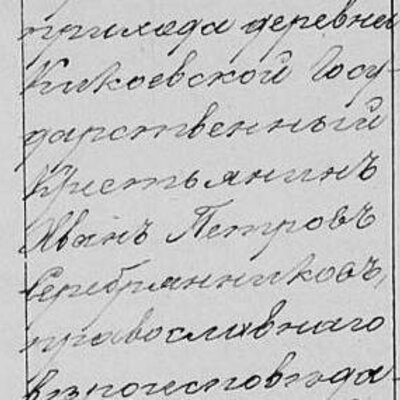 прихода деревни
Кикоевской Госу-
дарственный
Крестьянинъ
Иванъ Петровъ
Серебрянниковъ,
православнаго
вѣроисповѣда-